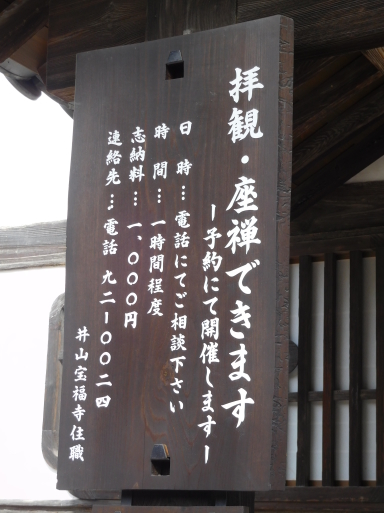 拝観・座禅できます
ー予約にて開催しますー
日 時…電話にてご相談下さい
時 間…一時間程度
志納料…一、〇〇〇円
連絡先…電話 九二ー〇〇二四
井山宝福寺住職